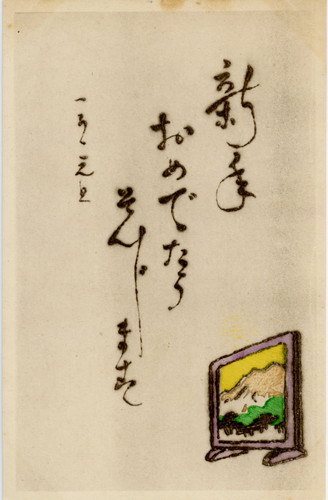 新年
おめでたう
そんじます
一月元旦